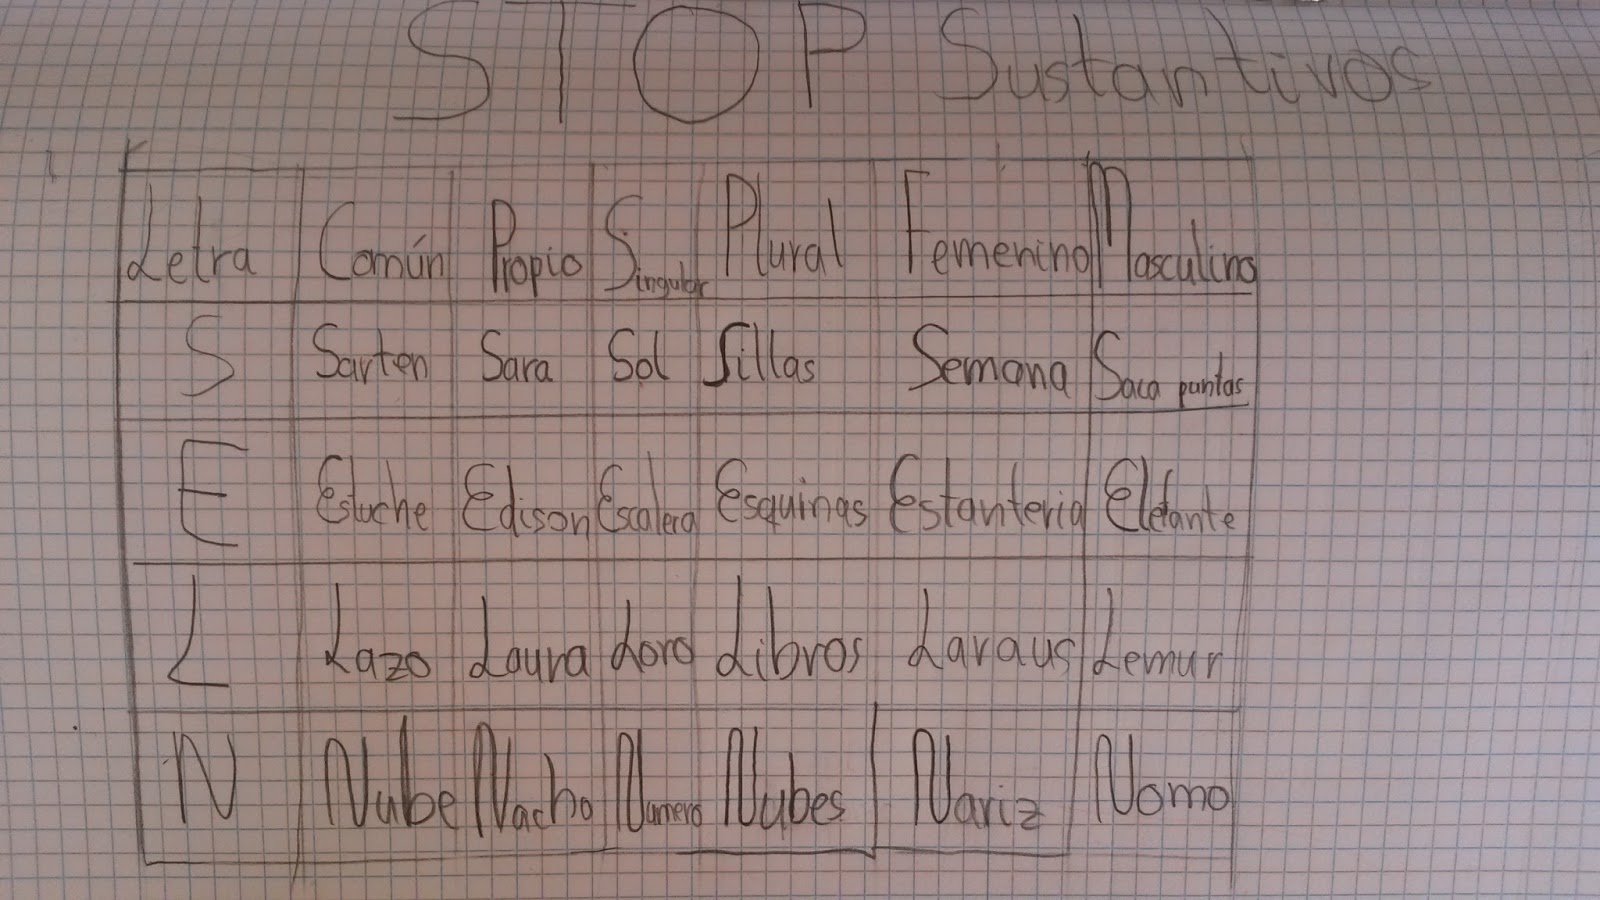 STOP Sustantivos
Letra Común Propio Singular Plural Femenino Masculino
S Sarten Sara Sol Sillas Semana Saca puntas
E Estuche Edison Escalera Esquinas Estanteria Elefante
L Lazo Laura Loro Libros Laraus Lemur
N Nube Nacho Numero Nubes Nariz Nomo